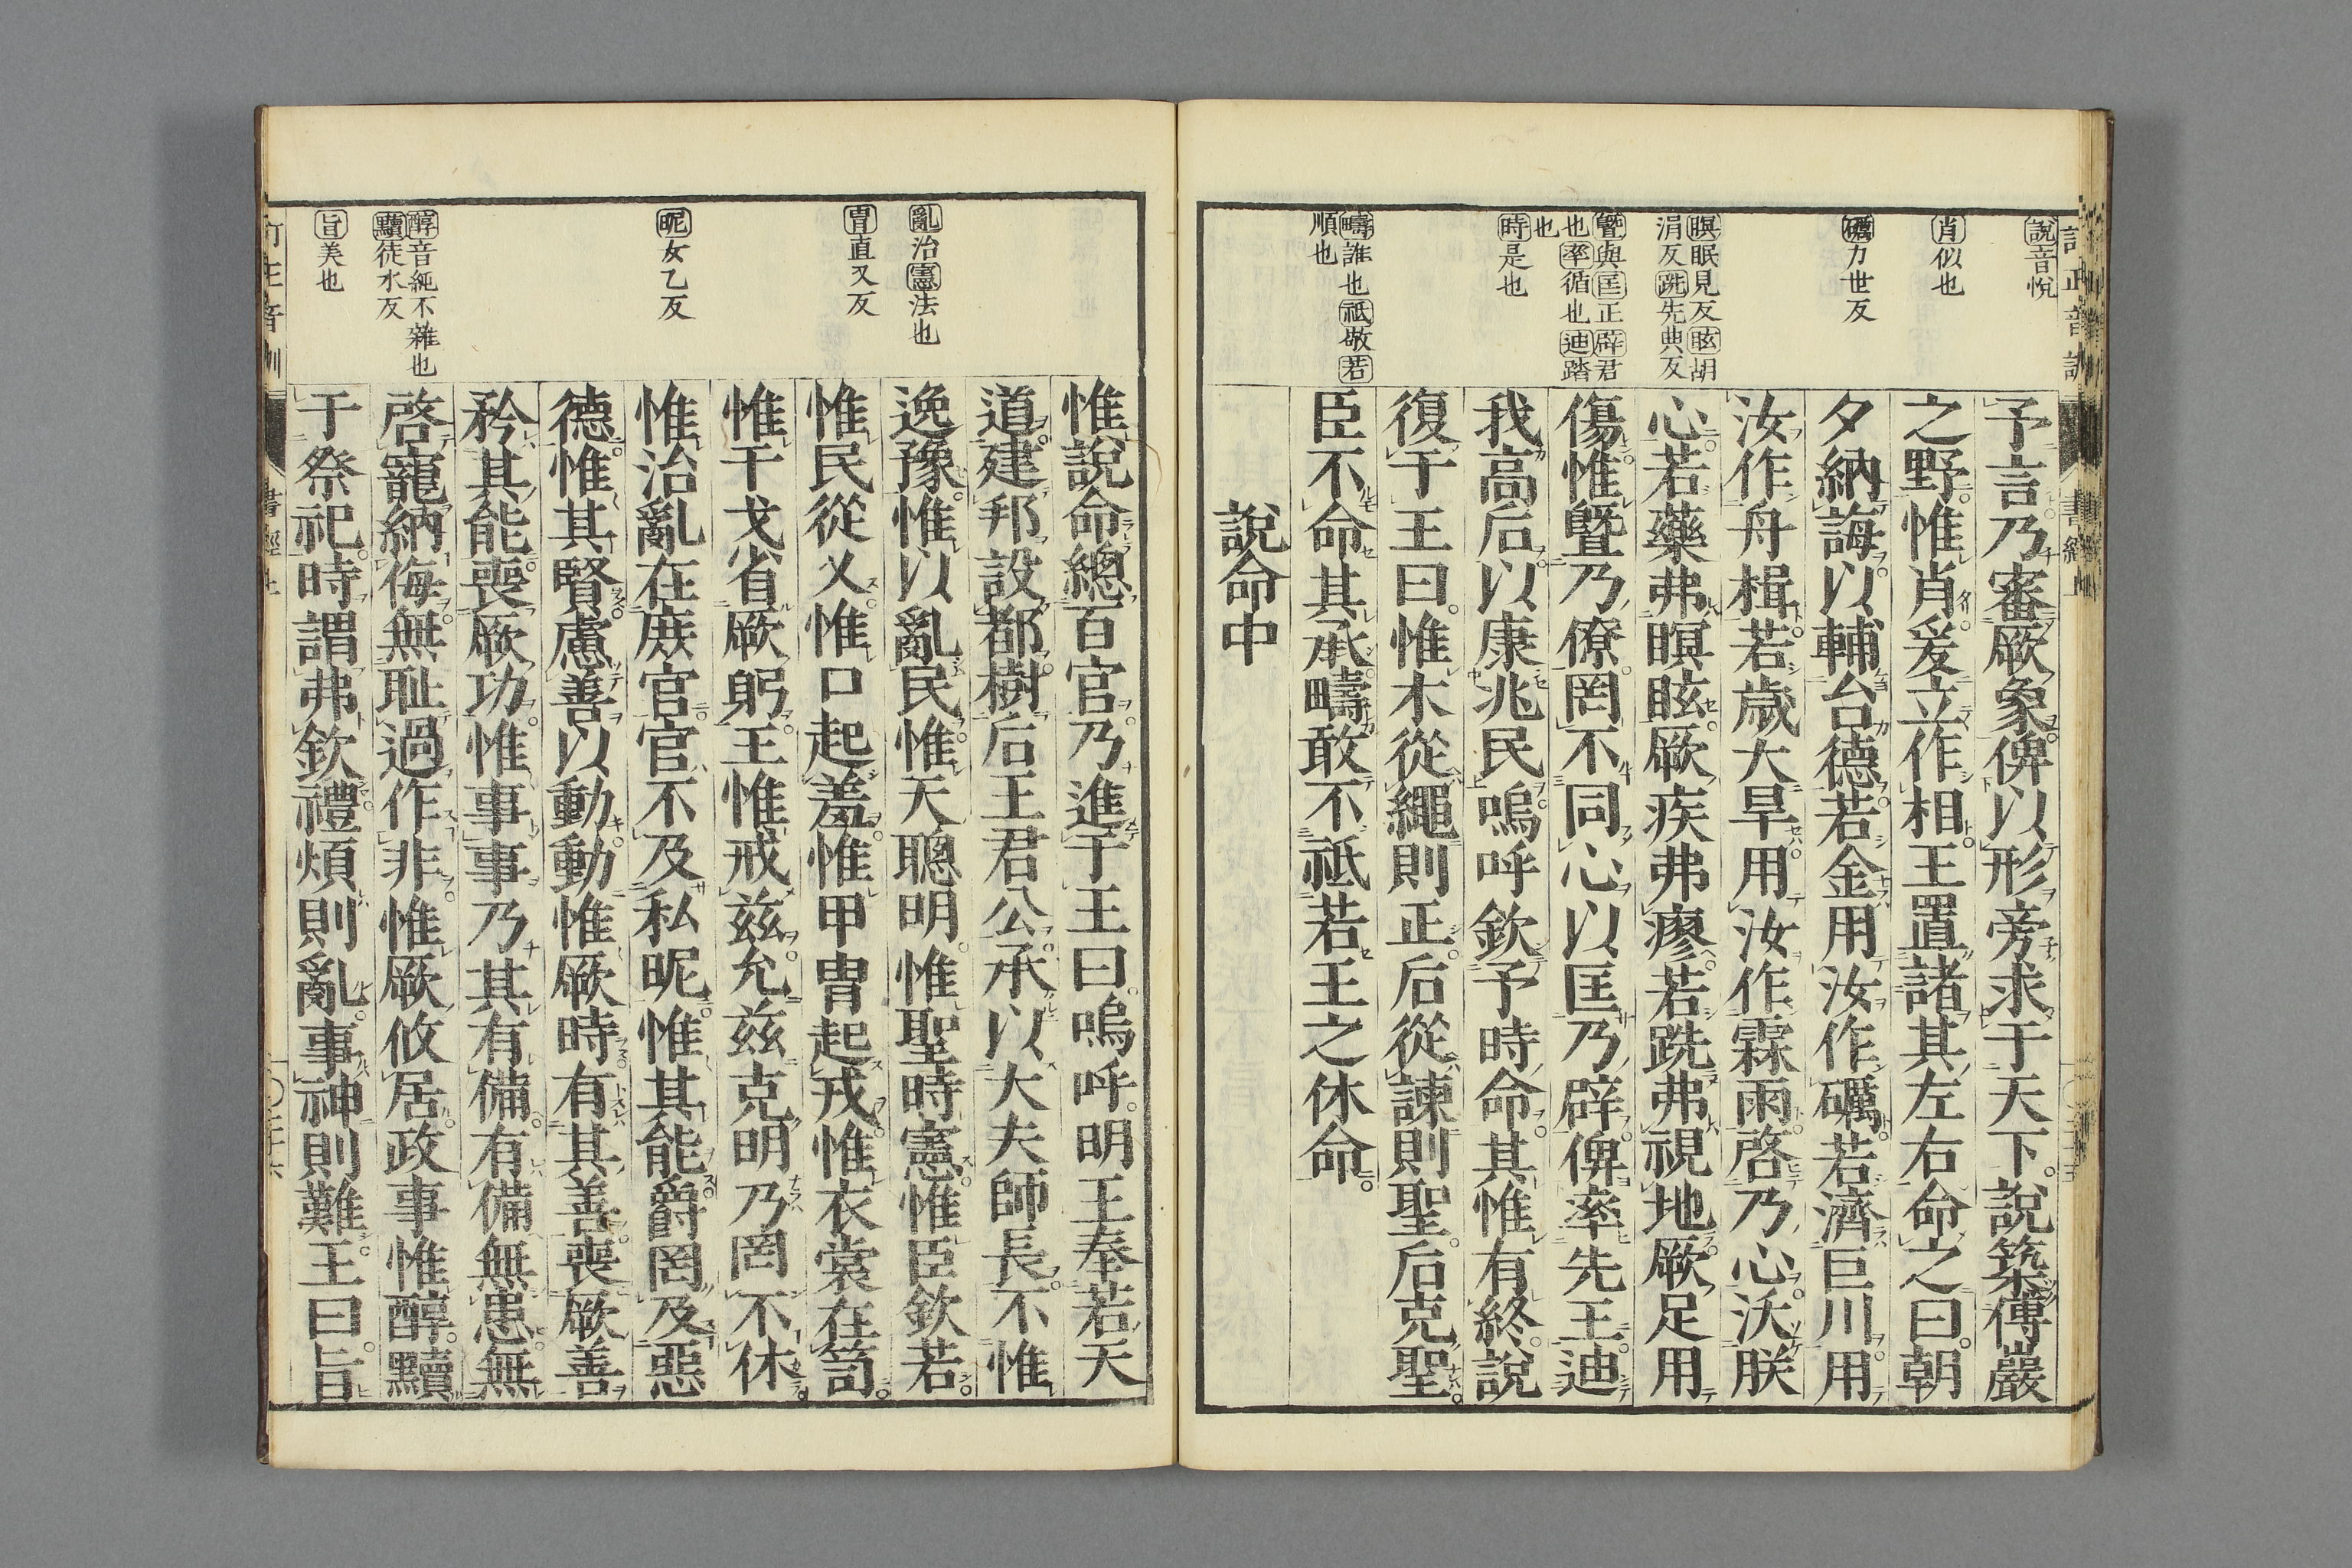 説音悅
肖似也
礪力世反
瞑眠見反眩胡
涓反跣先典反
曁與匡正辟君
也率循也迪踏
也
時是也
疇誰也祗敬若
順也
予言乃審厥象俾以形旁求于天下説築傅巖
之野惟肖爰立作相王置諸其左右命之曰朝
夕納誨以輔台德若金用汝作礪若濟巨川用
汝作舟楫若歲大旱用汝作霖雨啓乃心沃朕
心若藥弗瞑眩厥疾弗瘳若跣弗視地厥足用
傷惟曁乃僚罔不同心以匡乃辟俾率先王迪
我高后以康兆民嗚呼欽予時命其惟有終説
復于王曰惟木從繩則正后從諫則聖后克聖
臣不命其承疇敢不祗若王之休命
説命中
亂治憲法也
冑直又反
昵女乙反
醇音純不雜也
黷徒水反
旨美也
惟説命總百官乃進于王曰嗚呼明王奉若天
道建邦設都樹后王君公承以大夫師長不惟
逸豫惟以亂民惟天聰明惟聖時憲惟臣欽若
惟民從乂惟口起羞惟甲冑起戎惟衣裳在笥
惟干戈省厥躬王惟戒玆允玆克明乃罔不休
惟治亂在庻官官不及私昵惟其能爵罔及惡
德惟其賢慮善以動動惟厥時有其善喪厥善
矜其能喪厥功惟事事乃其有備有備無患無
啓寵納侮無耻過作非惟厥攸居政事惟醇黷
于祭祀時謂弗欽禮煩則亂事神則難王曰旨